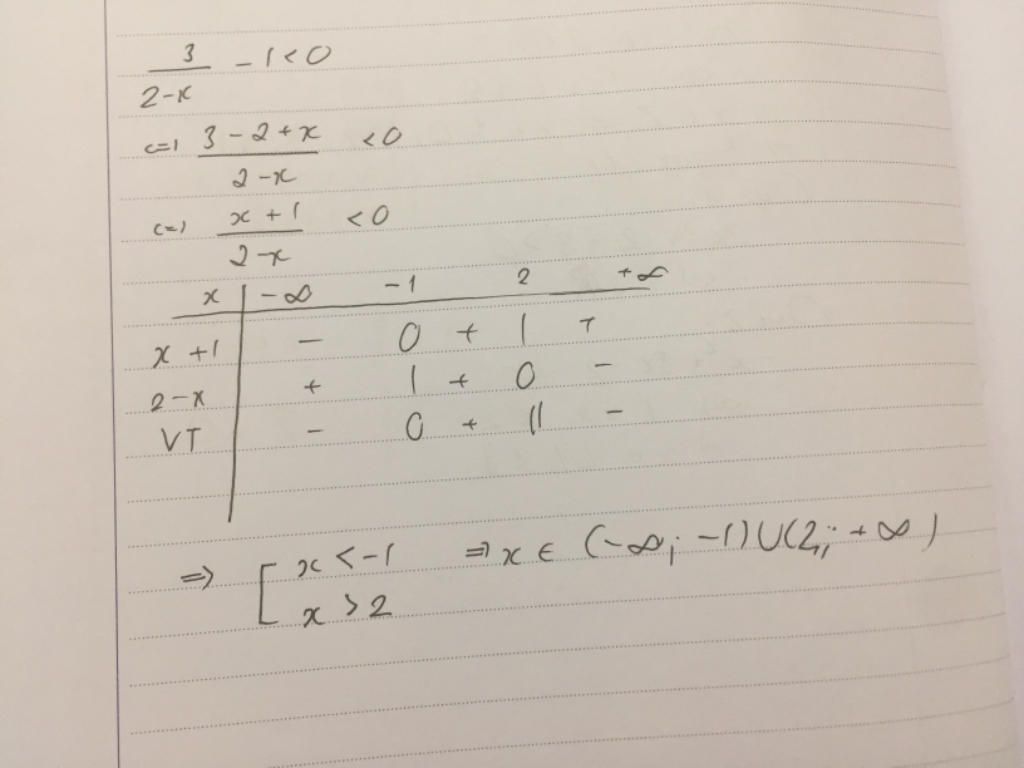 3/(2-x) - 1 < 0
<=> (3 - 2 + x)/(2 - x) < 0
<=> (x + 1)/(2 - x) < 0
x | -∞ -1 2 +∞
x + 1 | - 0 + | +
2 - x | + | + 0 -
VT | - 0 + || -
=> [ x < -1 => x ∈ (-∞; -1) ∪ (2; +∞)
x > 2